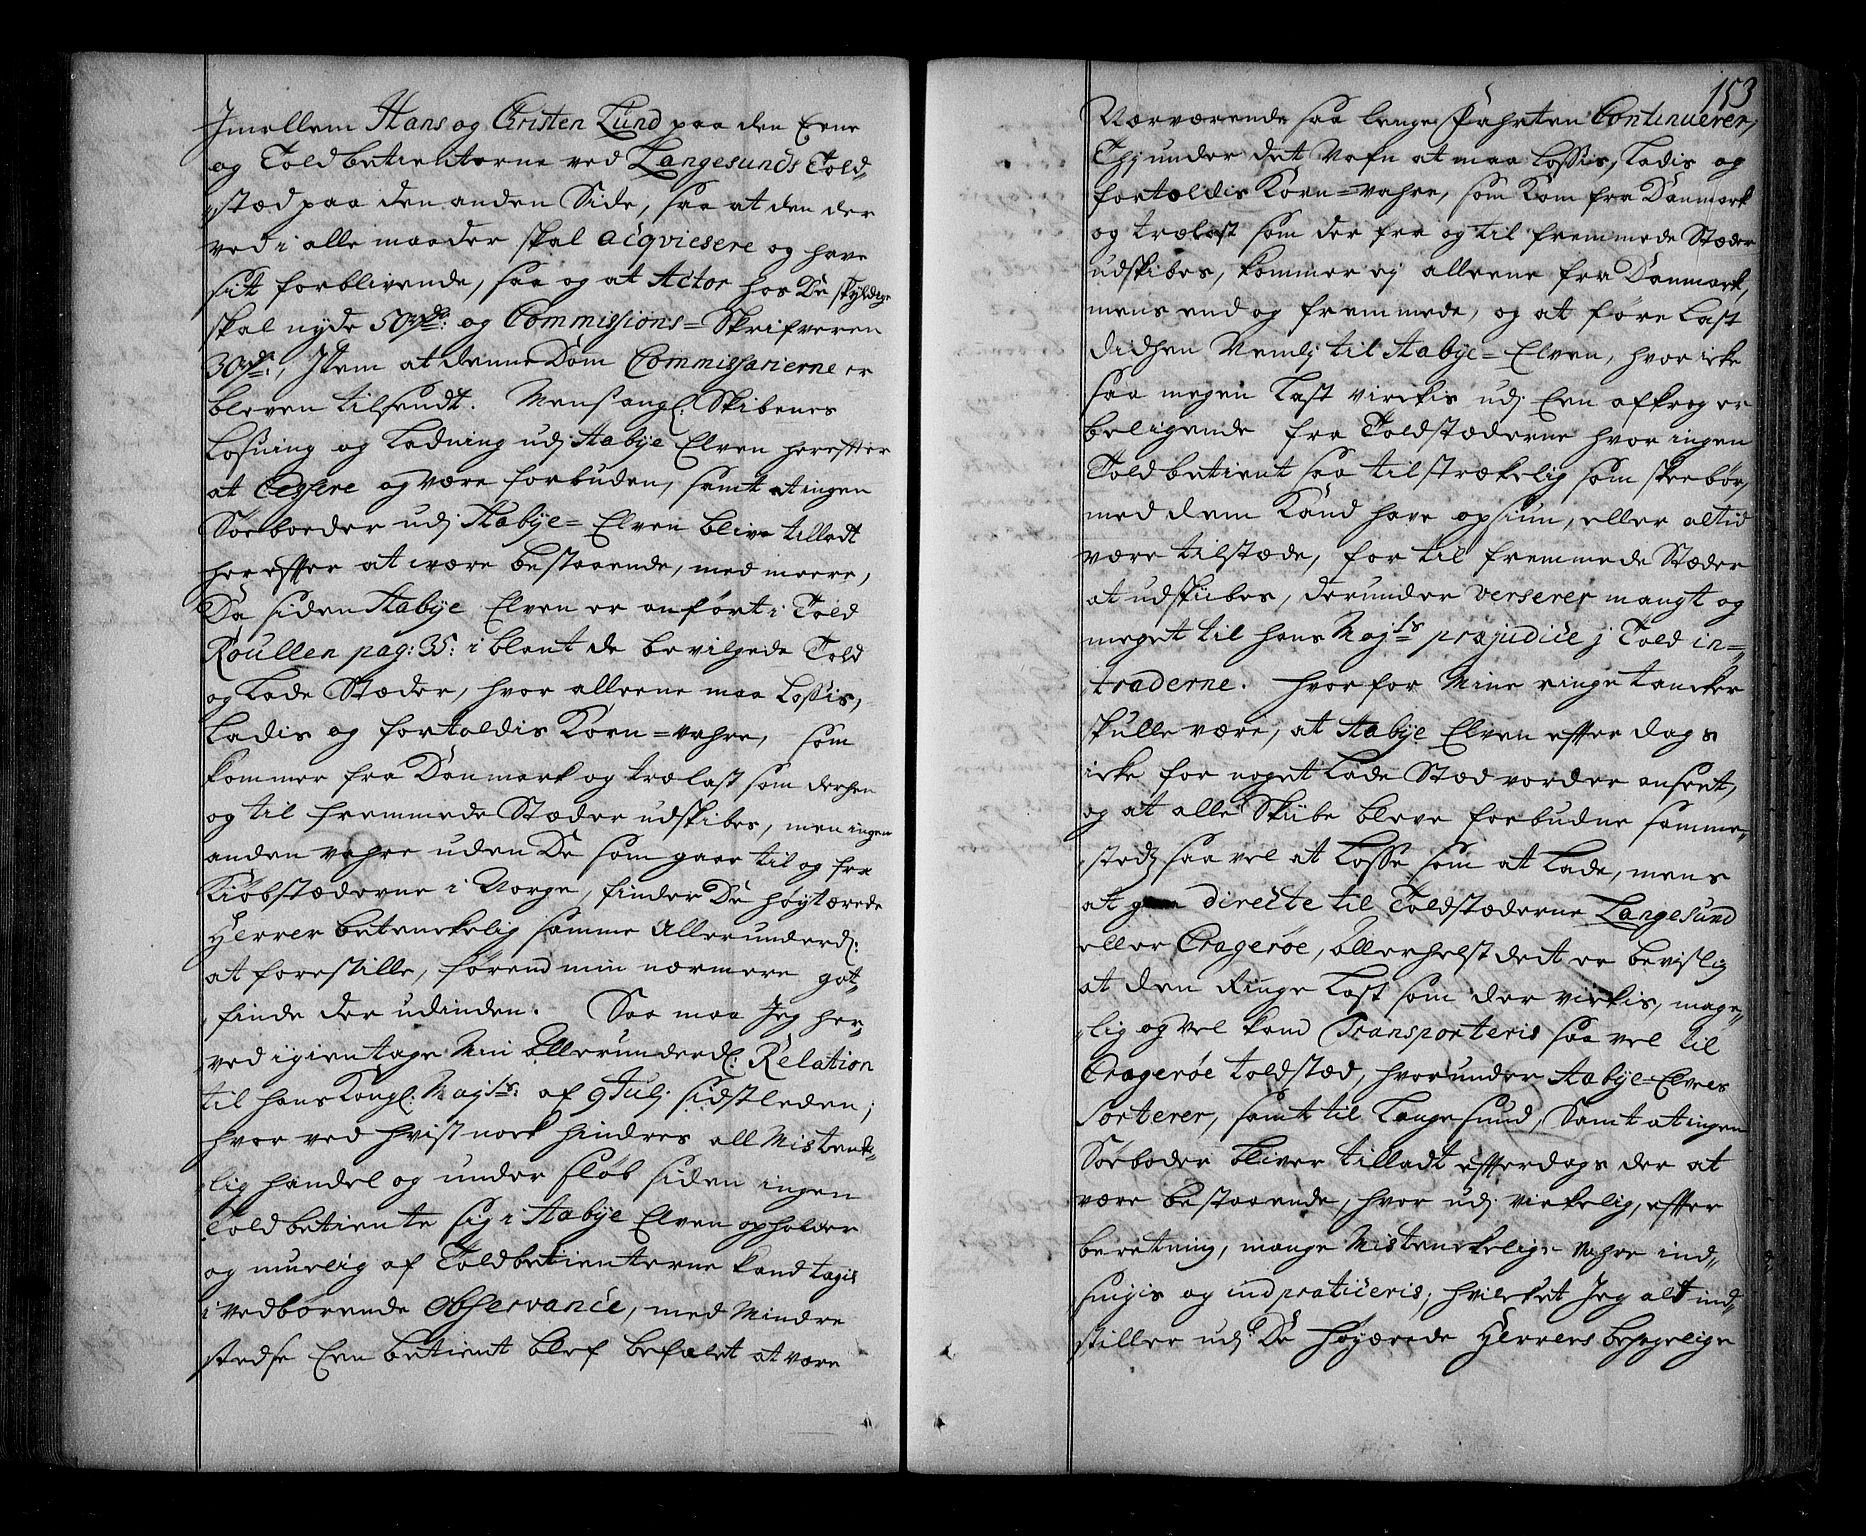 Jmellem Hans og Christen Lund paa den Eene
og Toldbetienterne ved Langesunds Told-
stæd paa den anden Side, saa at den der
ved i alle maader skal acqviesere og have
sit forblivende, saa og at Actor hos De skyldige
skal nyde 50 rdr: og Commissions=Skrifveren
30 rdr:, Jtem at denne Dom Commissarierne er
bleven tilsendt. Mens angl: Skibenes
Losning og Ladning udj Aabye Elven herefter
at Cessere og være forbuden, samt at ingen
Søeboeder udj Aabye=Elven blive tilladt
her effter at være bestaaende, med meere,
Da siden Aabye Elven er anført i Told
Roullen pag: 35: iblant de bevilgede Told
og Lade Stæder, hvor alleene maa Lossis,
Ladis og fortoldis Korn=vahre, som
kommer fra Danmark og trælast som derhen
og til fremmede Stæder udskibes, men ingen
anden vahre uden De som gaar til og fra
Kiøbstæderne i Norge, finder De høytærede
Herrer betenckelig samme Allerunderd:
at forestille, førend min nærmere got-
finde der udinden. Saa maa Jeg her-
ved igientage Min Allerunderd: Relation
til hans Kongl: Majts: af 9 Julj sidstleden;
hvor ved hvist nock hindres all Mistenck-
lig handel og under sløb siden ingen
Toldbetiente sig i Aabye Elven opholder
og muelig af Toldbetienterne kand tagis
i vedbørende Observance, med Mindre
stedse Een betient blef befalet at være
153
Nærværende saa lenge Fahrten Continuerer,
Thj under det Nafn at maa Lossis, Ladis og
fortoldis Korn=vahre, som kom fra Danmark
og trælast som der fra og til fremmede Stæder
udskibes, kommer ej alleene fra Danmark,
mens end og fremmede, og at føre Last
didhen Nemlj til Aabye=Elven, hvor icke
saa megen Last virckis udj Een afkrog er
beligende fra Toldstæderne hvor ingen
Toldbetient saa tilstrækelig som skee bør,
med dem kand have opsiun, eller altid
være tilstæde, for til fremmede Stæder
at udskibes, derunder verserer mangt og
meget til hans Majts præjudice j Told in=
traderne. Hvorfor Mine ringe tancker
skulle være, at Aabye Elven effter dags
icke for noget Lade Stæd vorder anseet,
og at alle Skibe bleve forbudne samme-
stedz saa vel at Losse som at Lade, mens
at gaa directe til Toldstæderne Langesund
eller Cragerøe, allerhelst det er bevislig
at den Ringe Last som der virkis, mage-
lig og vel kand Transporteris saa vel til
Cragerøe toldstæd, hvorunder Aabye=Elves
Sorterer, samt til Langesund, Samt at ingen
Søeboder bliver tilladt effterdags der at
være bestaaende, hvor udj virkelig, effter
beretning, mange Mistenckelige Vahre ind-
snigis og indpraticeris; hvilcket Jeg alt ind-
stiller udj De Høyærede Herrers behagelige